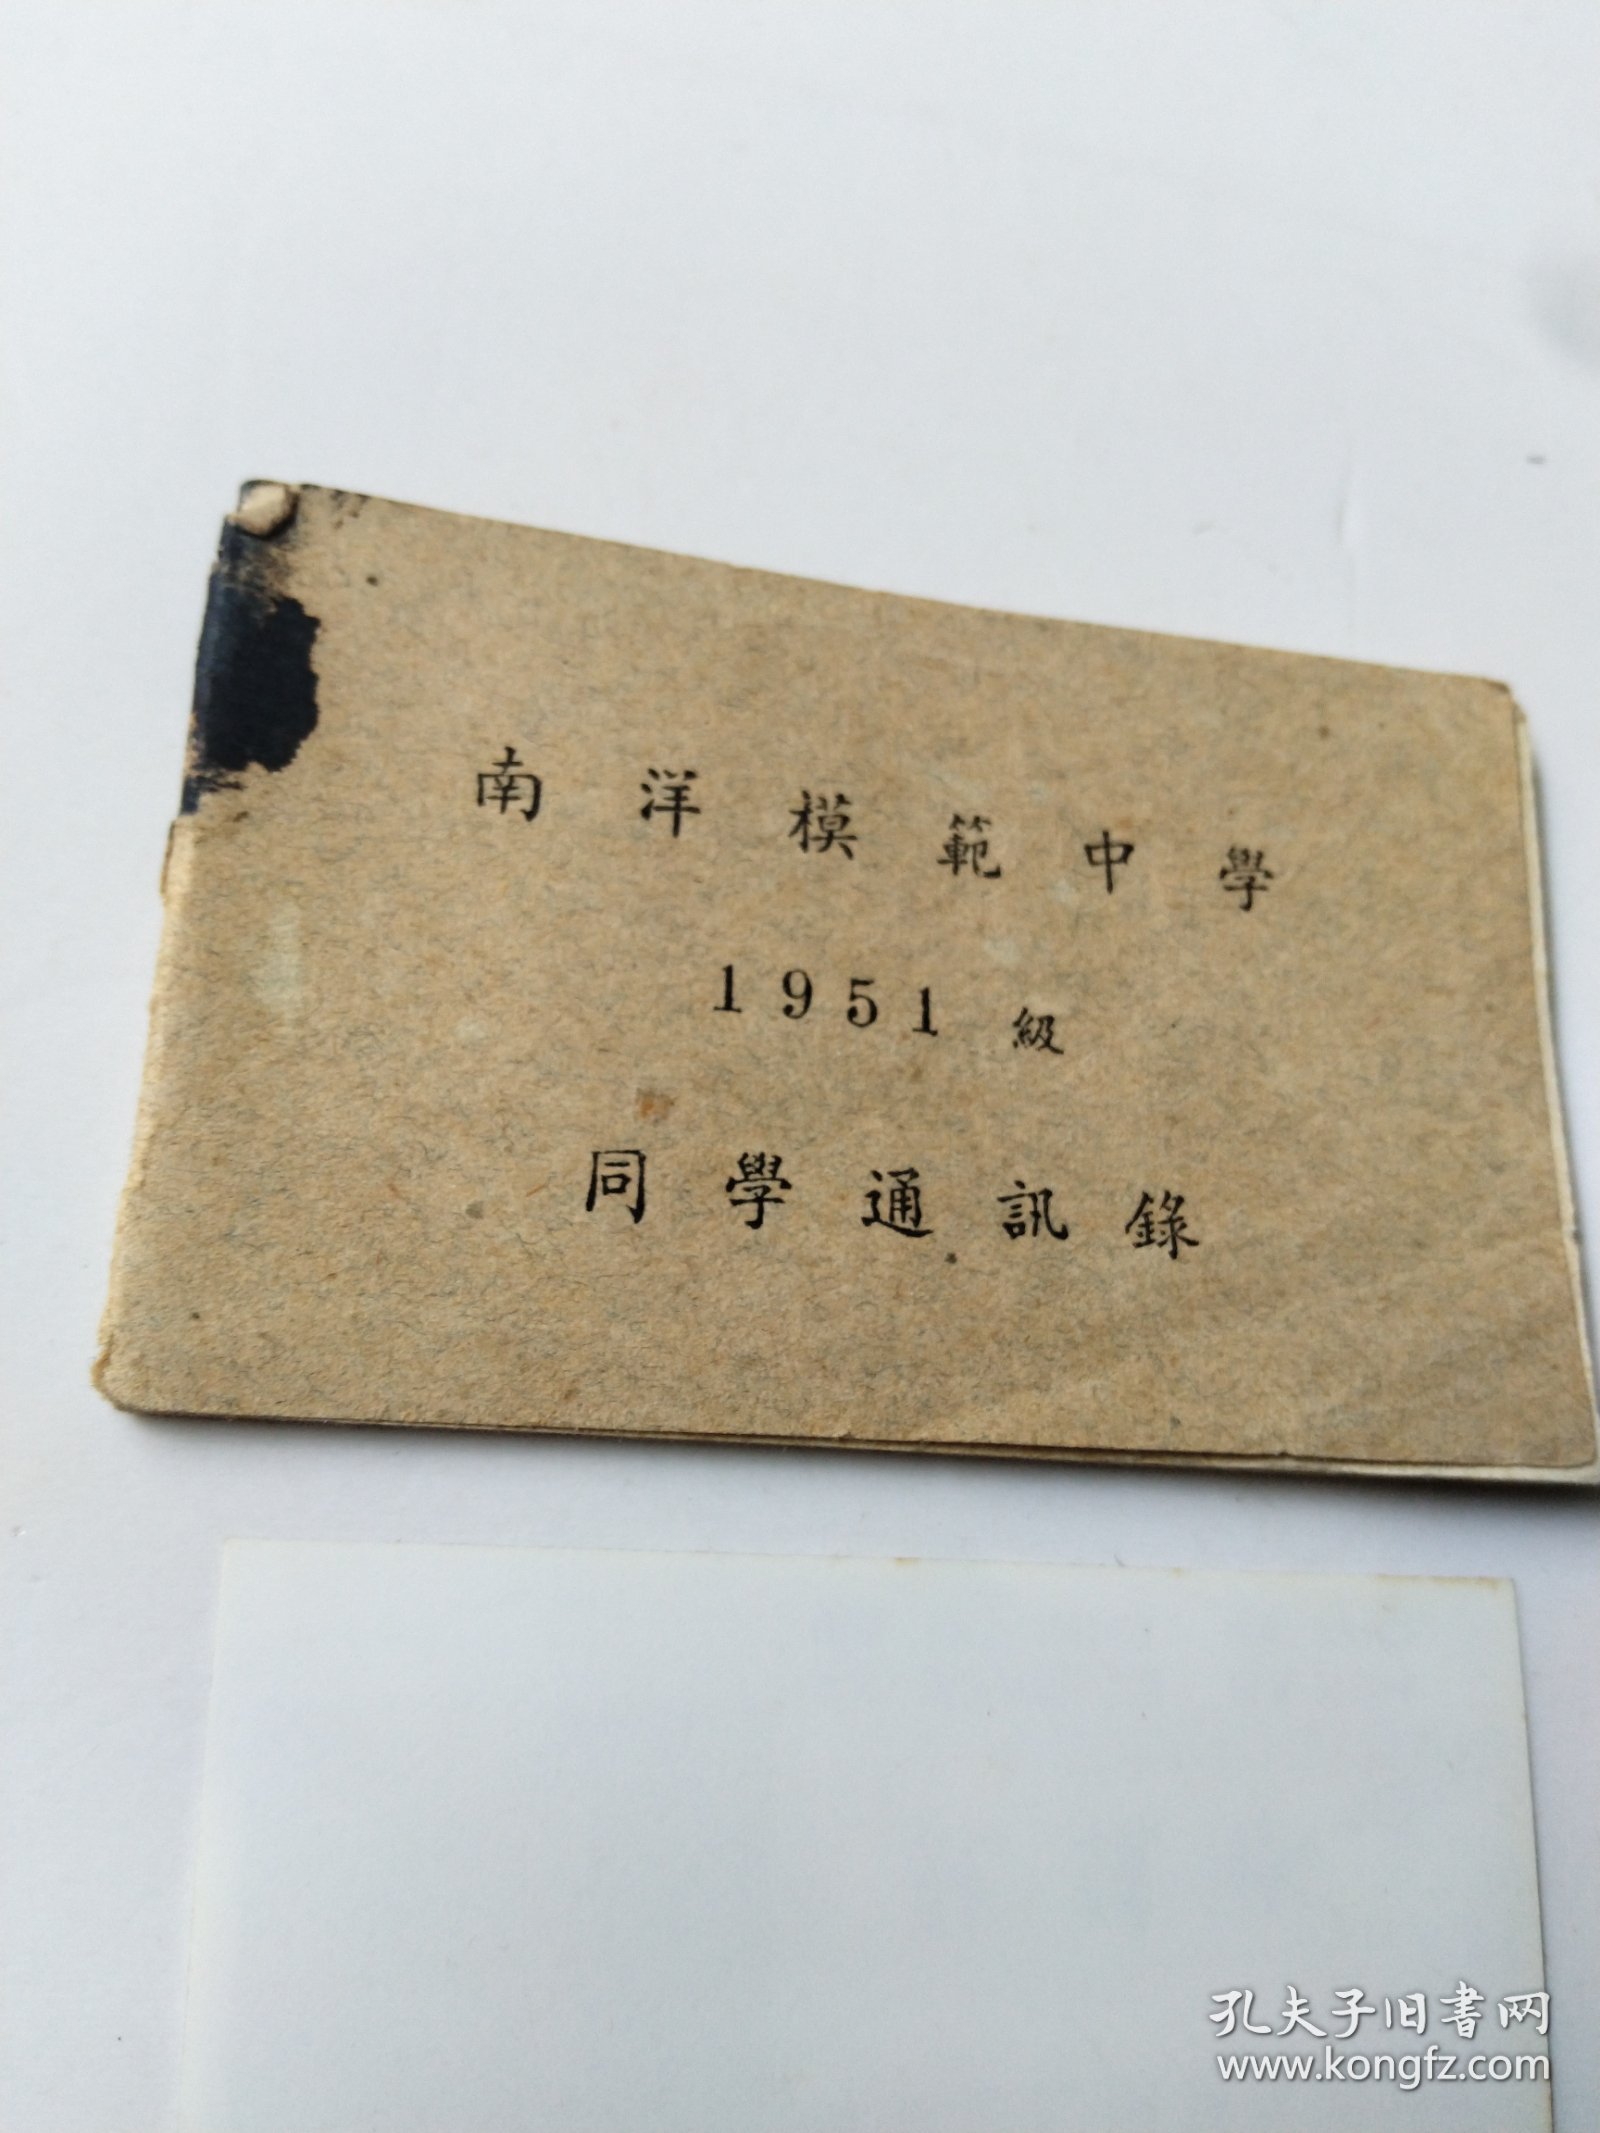 南洋模範中學
1951級
同學通訊錄
孔夫子旧書网
www.kongfz.com